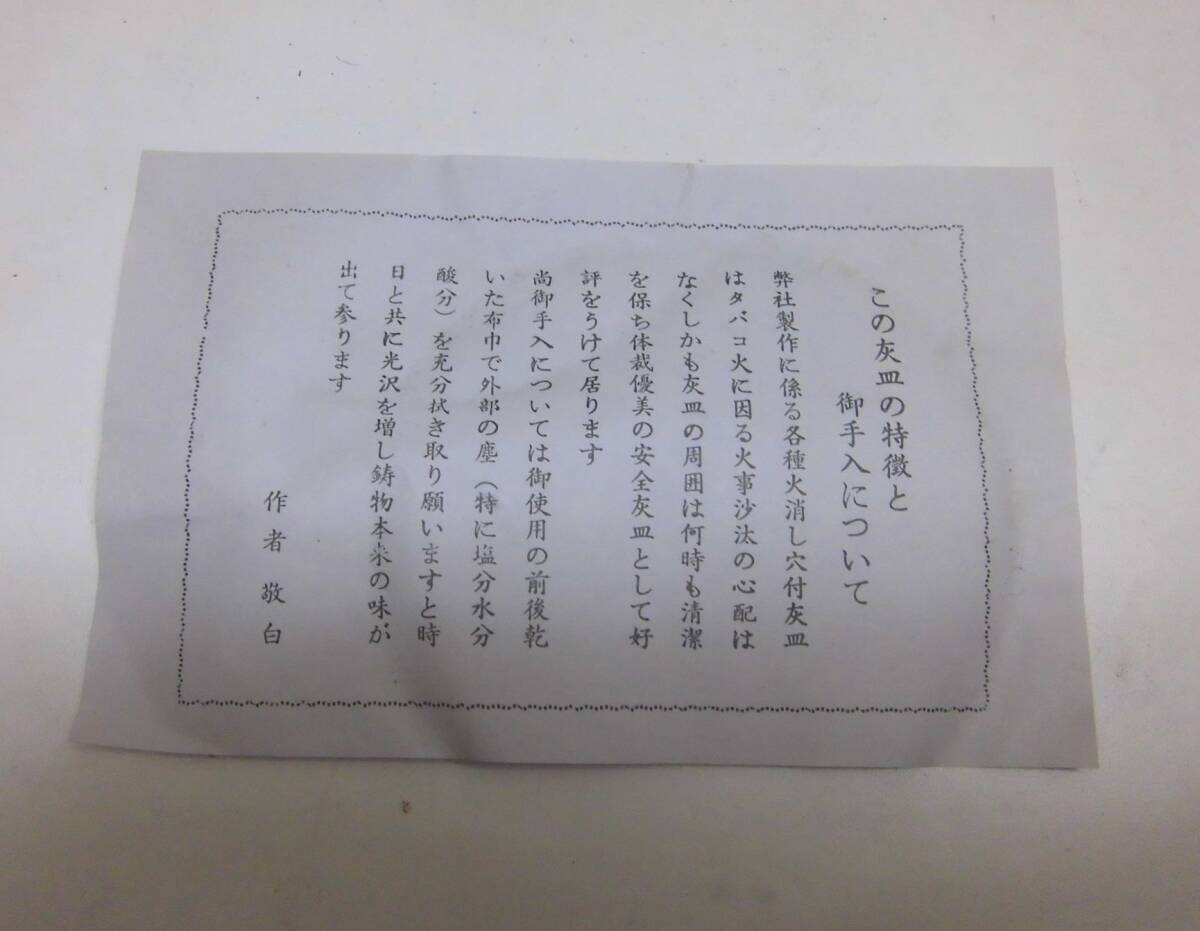 この灰皿の特徴と
御手入について
弊社製作に係る各種火消し穴付灰皿
はタバコ火に因る火事沙汰の心配は
なくしかも灰皿の周囲は何時も清潔
を保ち体裁優美の安全灰皿として好
評をうけて居ります
尚御手入については御使用の前後乾
いた布巾で外部の塵（特に塩分水分
酸分）を充分拭き取り願いますと時
日と共に光沢を増し鋳物本来の味が
出て参ります
作者敬白